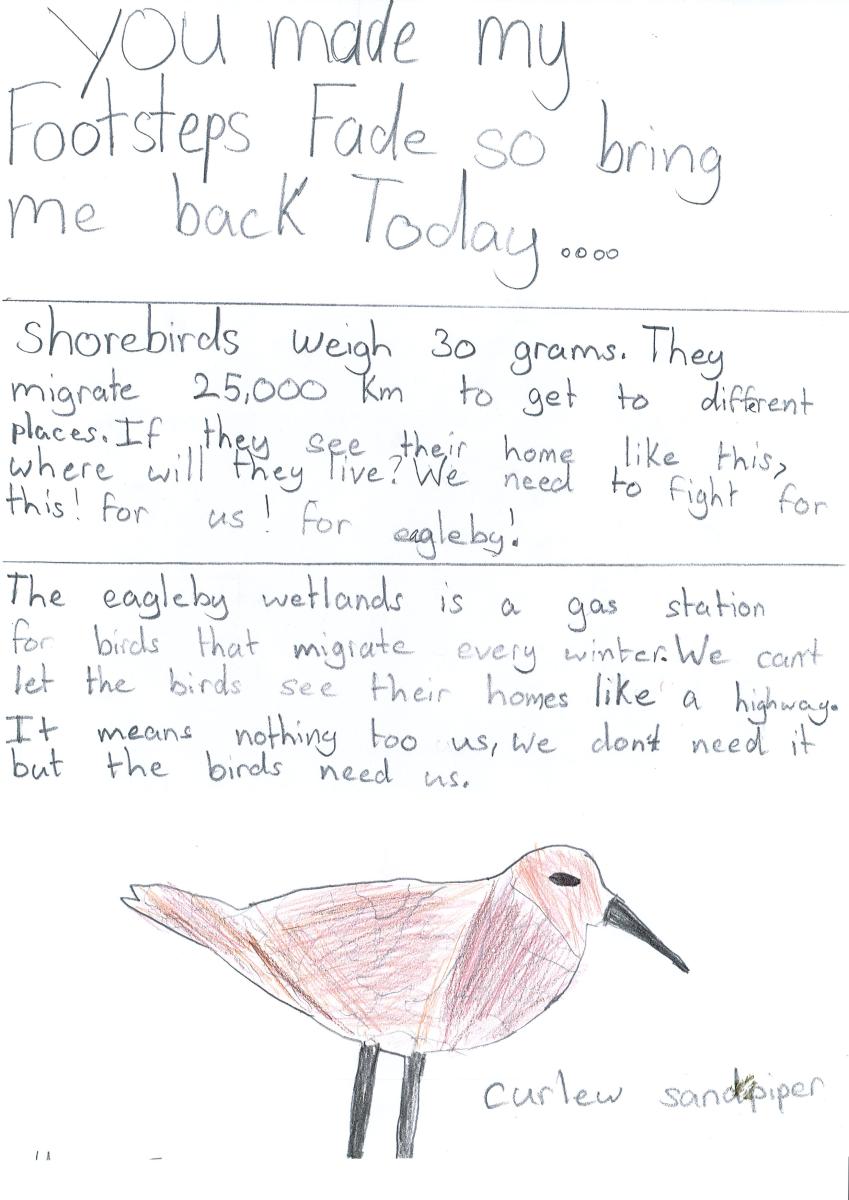 You made my
Footsteps Fade so bring
me back Today....
Shorebirds weigh 30 grams. They
migrate 25,000 Km to get to different
places. If they see their home like this,
where will they live? We need to fight for
this! for us! for eagleby!
The eagleby wetlands is a gas station
for birds that migrate every winter. We can't
let the birds see their homes like a highway.
It means nothing too us, we don't need it
but the birds need us.
curlew sandpiper